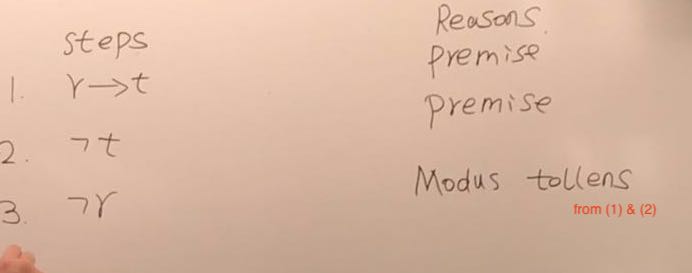 steps Reasons.
1. r→t premise
2. ¬t premise
3. ¬r Modus tollens
from (1) & (2)